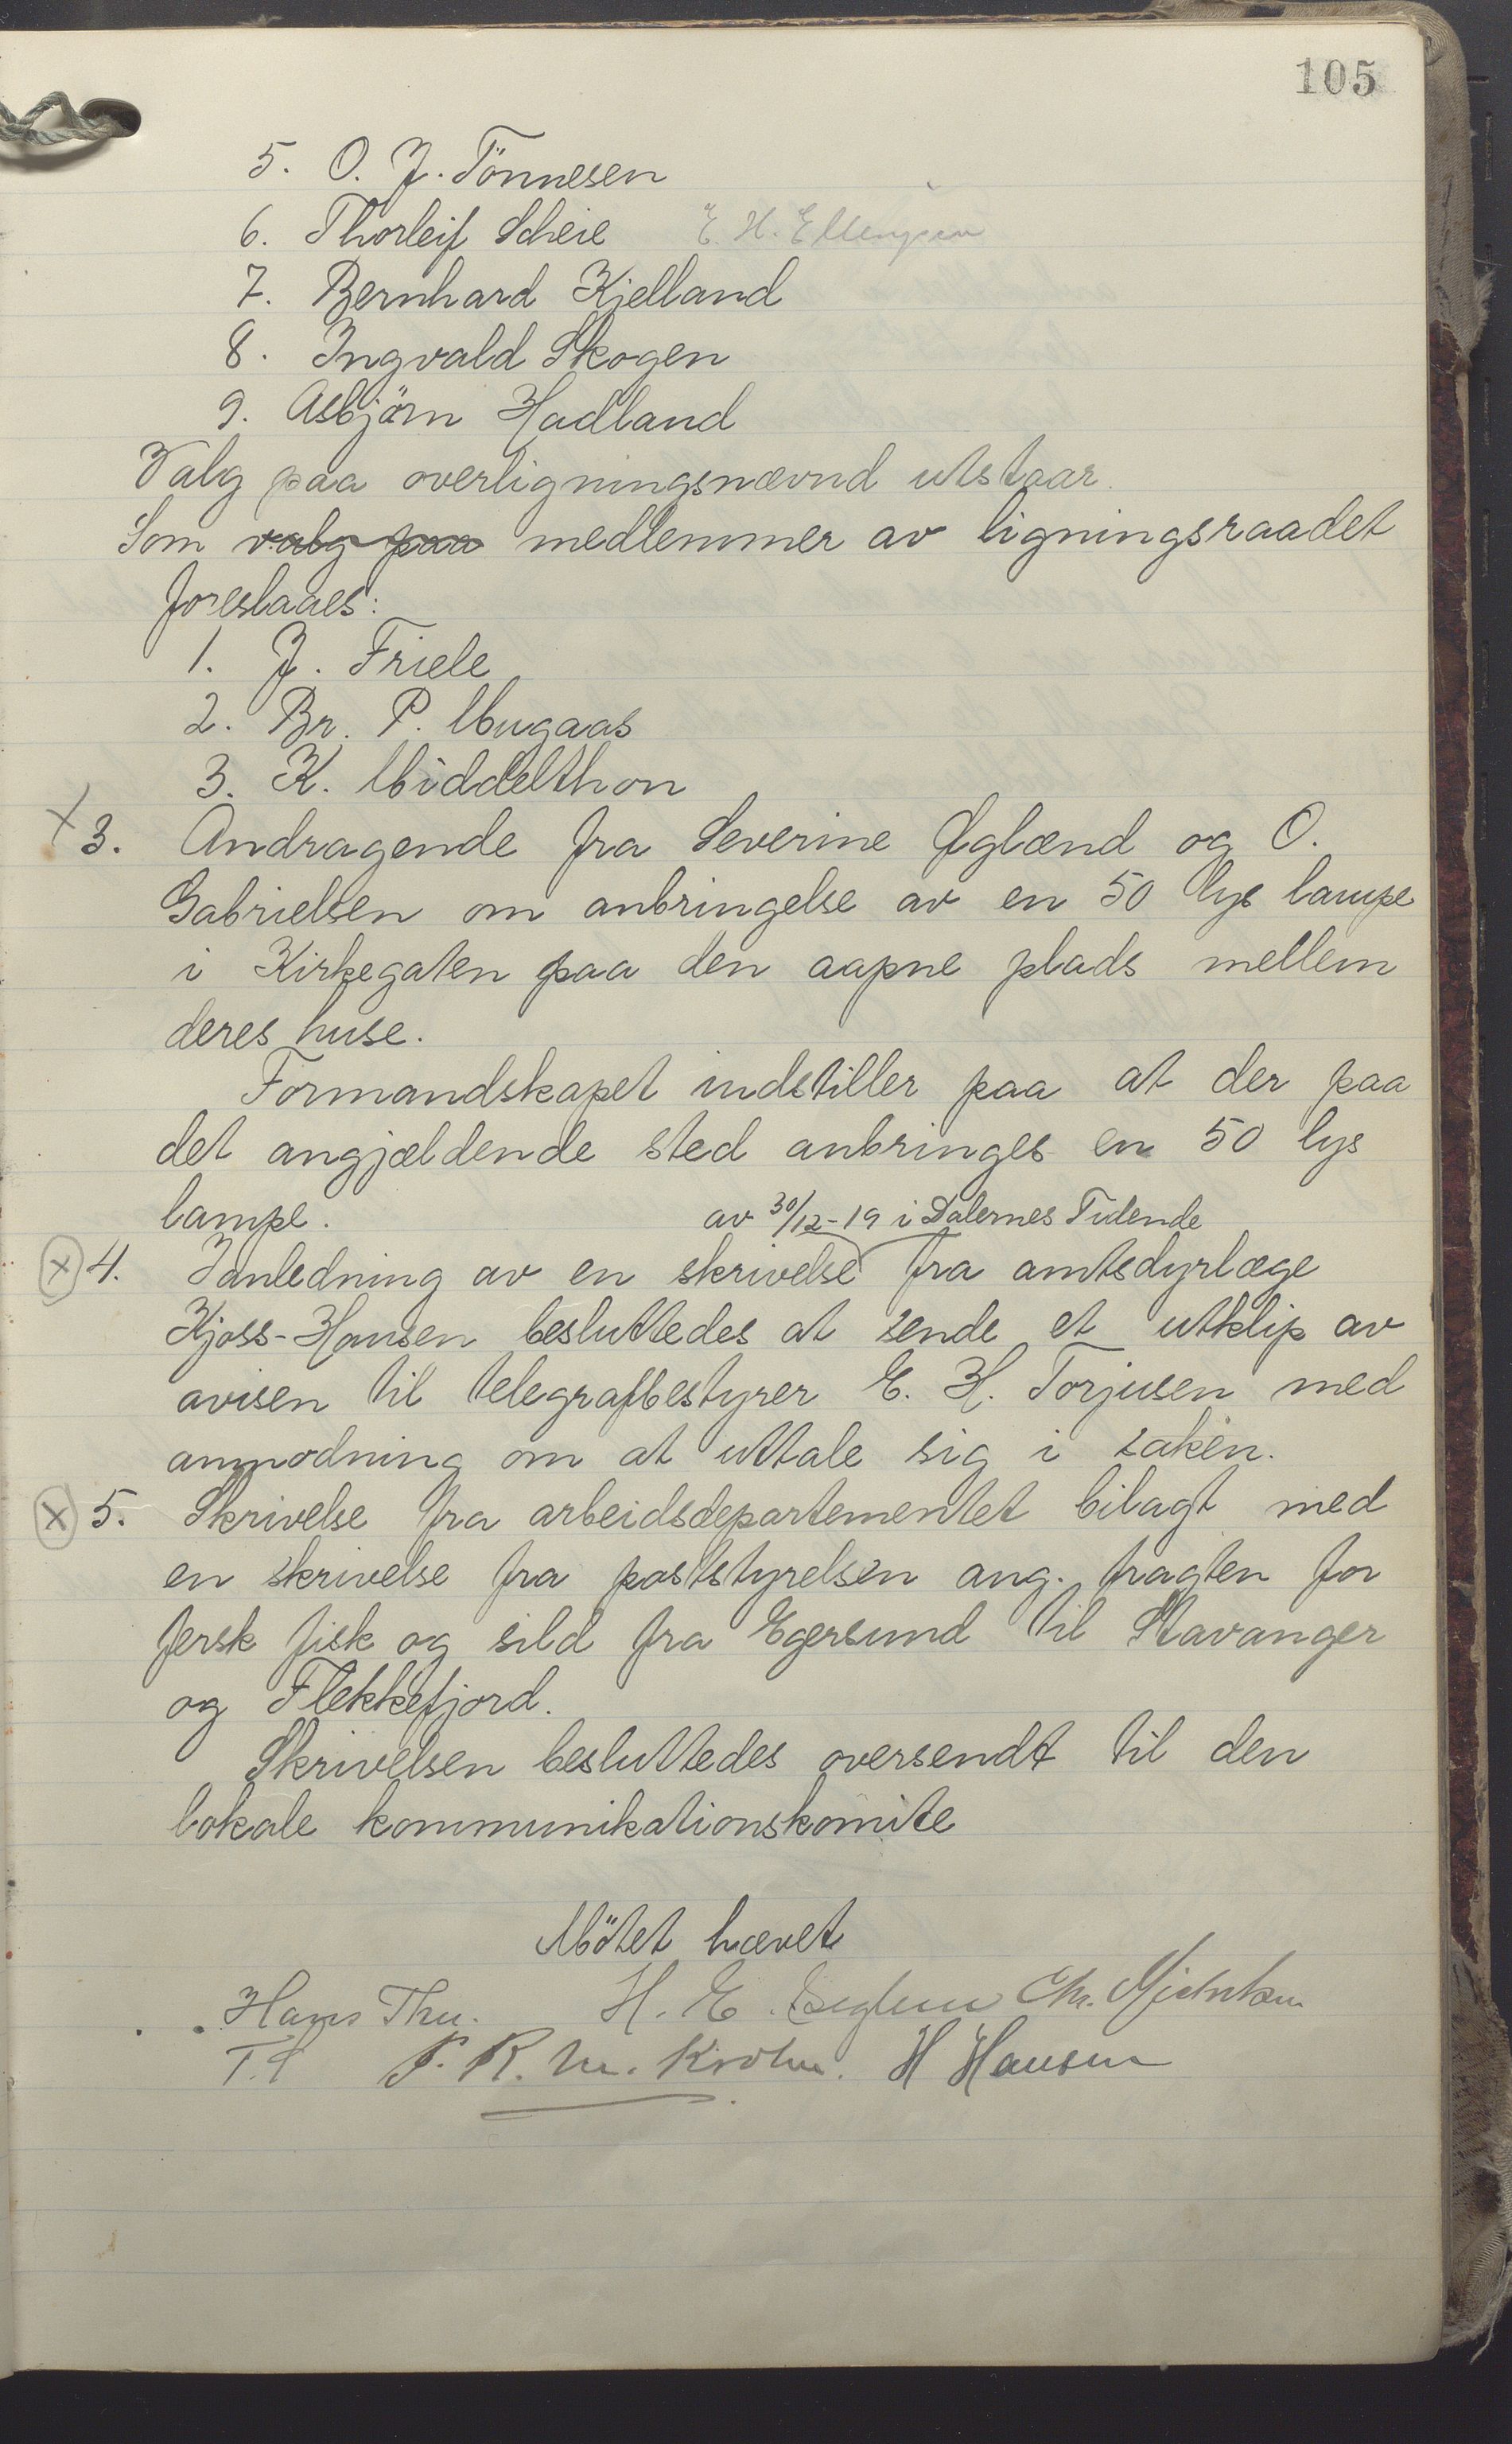 105
5. O. J. Tönnesen
6. Thorleif Scheie E. H. Ellingsen
7. Bernhard Kjelland
8. Ingvald Skogen
9. Asbjörn Hadland
Valg paa overligningsnævnd utstaar.
Som valg paa medlemmer av ligningsraadet
foreslaaes:
1. J. Friele
2. Br. P. Mugaas
3. K. Middelthon
3. Andragende fra Severine Øglænd og O.
Gabrielsen om anbringelse av en 50 lys lampe
i Kirkegaten paa den aapne plads mellem
deres huse.
Formandskapet indstiller paa at der paa
det angjældende sted anbringes en 50 lys
lampe.
av 30/12-19 i Dalernes Tidende
4. Ianledning av en skrivelse fra amtsdyrlæge
Kjoss-Hansen besluttedes at sende et utklip av
avisen til telegrafbestyrer E. H. Torjusen med
anmodning om at uttale sig i saken.
5. Skrivelse fra arbeidsdepartementet bilagt med
en skrivelse fra poststyrelsen ang. fragten for
fersk fisk og sild fra Egersund til Stavanger
og Flekkefjord.
Skrivelsen besluttedes oversendt til den
lokale kommunikationskomite
Mötet hævet
Hans Thu. H. E. Chr.
P. R. M. Krohn. H Hansen